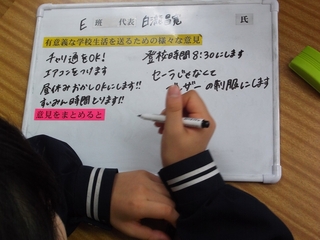 E 班 代表 氏
有意義な学校生活を送るための様々な意見
チャリ通をOK!
エアコンをつけます
昼休みおかしOKにします!!
すいみん時間とります!!
登校時間8:30にします
セーラーじゃなくて
の制服にします
意見をまとめると